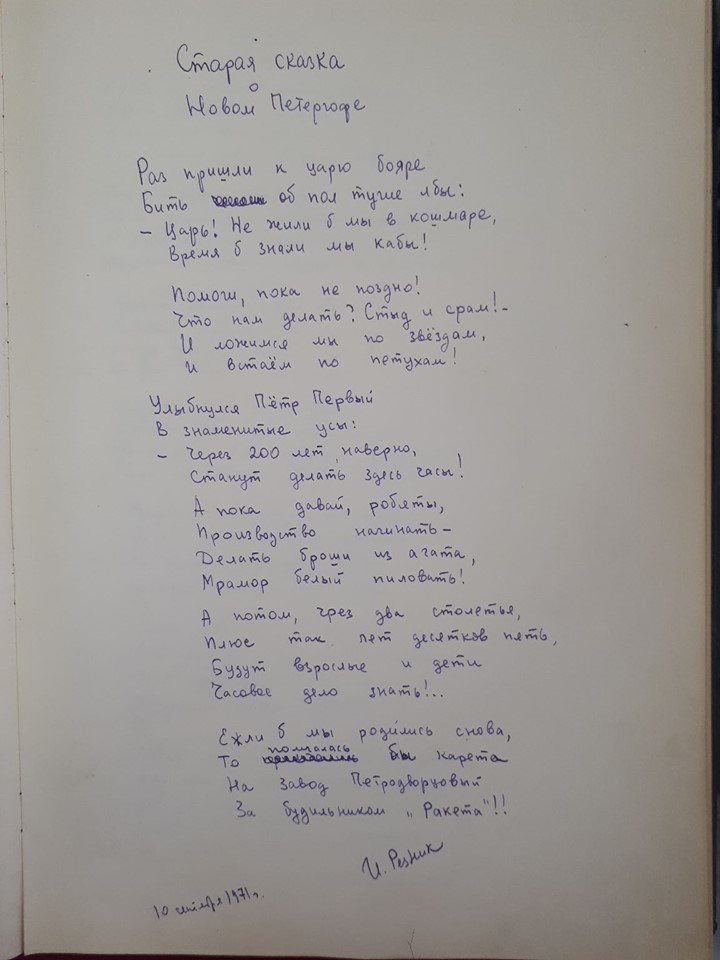 Старая сказка
о
Новом Петергофе
Раз пришли к царю бояре
Бить об пол тугие лбы:
– Царь! Не жили б мы в кошмаре,
Время б знали мы кабы!
Помоги, пока не поздно!
Что нам делать? Стыд и срам! –
И ложимся мы по звёздам,
И встаём по петухам!
Улыбнулся Пётр Первый
В знаменитые усы:
– Через 200 лет, наверно,
Станут делать здесь часы!
А пока давай, робяты,
Производство начинать –
Делать броши из агата,
Мрамор белый пиловать!
А потом, чрез два столетья,
Плюс так лет десятков пять,
Будут взрослые и дети
Часовое дело знать!..
Ежли б мы роди́лись снова,
То помчалась бы карета
На завод Петродворцовый
За будильником „Ракета"!!
И. Резник
10 сентября 1971 г.